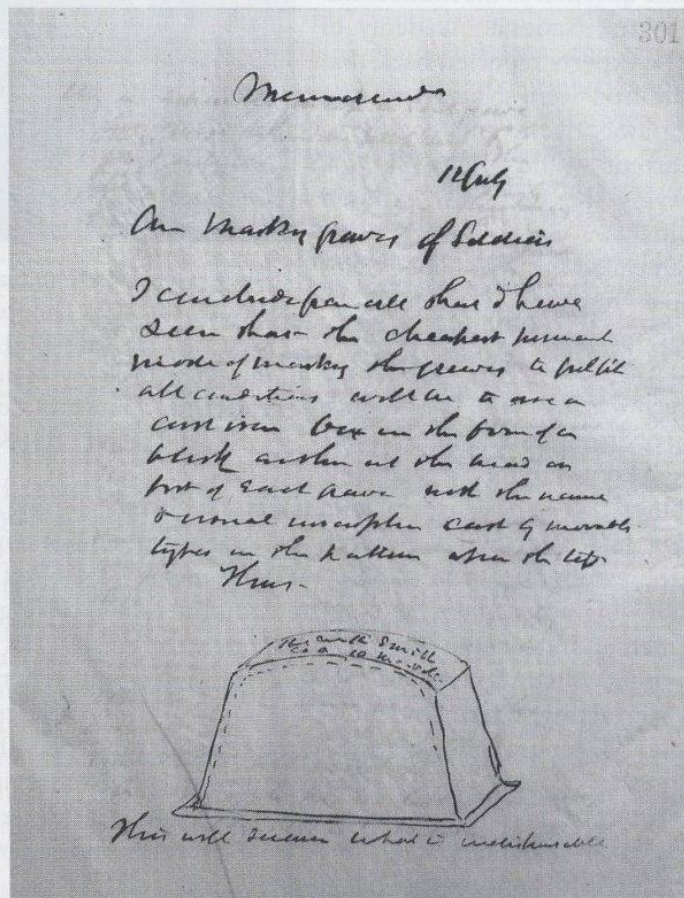 301
Memoranda
12 July
On Marking graves of Soldiers
I conclude from all that I have
seen that the cheapest permanent
mode of marking the graves to fulfil
all conditions will be to use a
cast iron box in the form of a
block anchored at the head or
foot of each grave with the name
& usual inscription cast by movable
types in the pattern upon the top
Thus-
Smith
Co a 10
This will secure what is indispensable